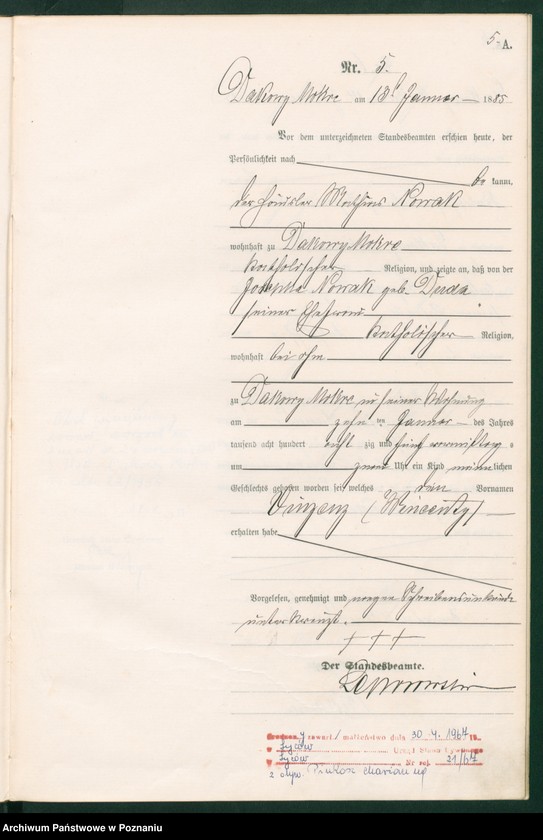 5. A.
Nr. 5.
Dakowy Mokre am 13ᵗ Januar 1885
Vor dem unterzeichneten Standesbeamten erschien heute, der
Persönlichkeit nach
be kannt,
der Häusler Mathias Nowak
wohnhaft zu Dakowy Mokre
katholischer Religion, und zeigte an, daß von der
Josepha Nowak geb. Duda
seiner Ehefrau
katholischer Religion,
wohnhaft bei ihm
zu Dakowy Mokre in seiner Wohnung
am zehn ten Januar des Jahres
tausend acht hundert acht zig und fünf Vormittag s
um zwei Uhr ein Kind männlichen
Geschlechts geboren worden sei, welches den Vornamen
Vinzenz (Wincenty)
erhalten habe
Vorgelesen, genehmigt und wegen Schreibensunkunde
unterkreuzt.
+ + +
Der Standesbeamte.
zawarł małżeństwo dnia 1967
w Syców Urząd Stanu Cywilnego
w Syców Nr rej. 21/67
Archiwum Państwowe w Poznaniu